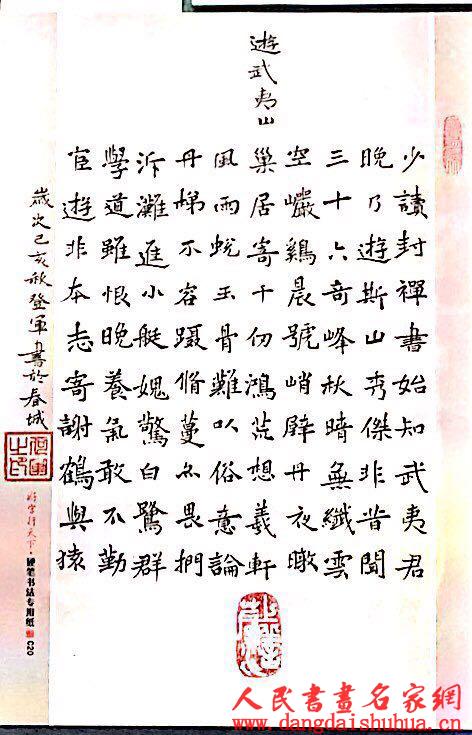 遊武夷山
少讀封禪書始知武夷君
晚乃遊斯山秀傑非昔聞
三十六奇峰秋晴無纖雲
空巖鷄晨號峭壁丹夜暾
巢居寄千仞鴻荒想羲軒
風雨蛻玉骨難以俗意論
丹梯不容躡脩蔓亦畏捫
泝灘進小艇媿驚白鷺群
學道雖恨晚養氣敢不勤
宦遊非本志寄謝鶴與猿
歲次己亥秋登軍書於春城
好字行天下·硬笔书法专用纸 C20
人民書畫名家網
www.dangdaishuhua.cn